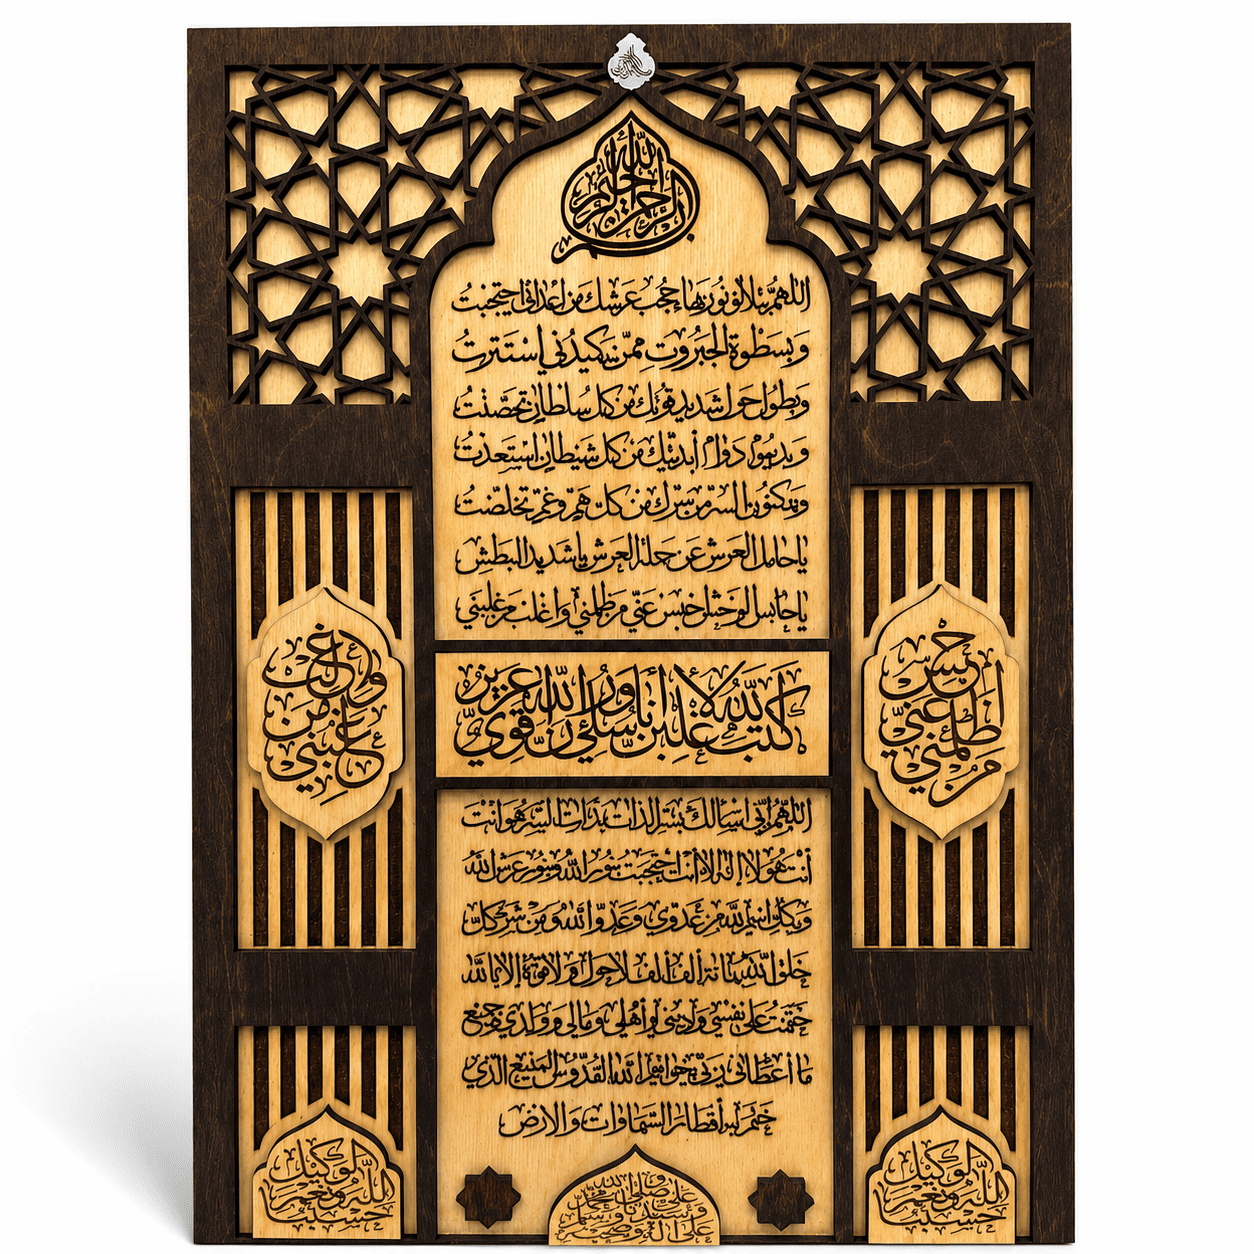 بسم الله الرحمن الرحيم
اللهم بتلألؤ نور بهاء حجب عرشك من أعدائي احتجبت
وبسطوة الجبروت ممن يكيدني استترت
وبطول حول شديد قوتك من كل سلطان تحصنت
وبديموم دوام أبديتك من كل شيطان استعذت
وبمكنون السر من سرك من كل هم وغم تخلصت
يا حامل العرش عن حملة العرش يا شديد البطش
يا حابس الوحش احبس عني من ظلمني واغلب من غلبني
احبس عني من ظلمني
واغلب من غلبني
كتب الله لأغلبن أنا ورسلي إن الله قوي عزيز
اللهم إني أسألك بسر الذات بذات السر هو أنت
أنت هو لا إله إلا أنت احتجبت بنور الله وبنور عرش الله
وبكل اسم لله من عدوي وعدو الله ومن شر كل
خلق الله بمائة ألف ألف لا حول ولا قوة إلا بالله
ختمت على نفسي وديني وأهلي ومالي وولدي وجميع
ما أعطاني ربي بخواتيم الله القدوس المنيع الذي
ختم به أقطار السماوات والأرض
حسبنا الله ونعم الوكيل
وصلى الله على سيدنا محمد وعلى آله وصحبه وسلم
حسبنا الله ونعم الوكيل